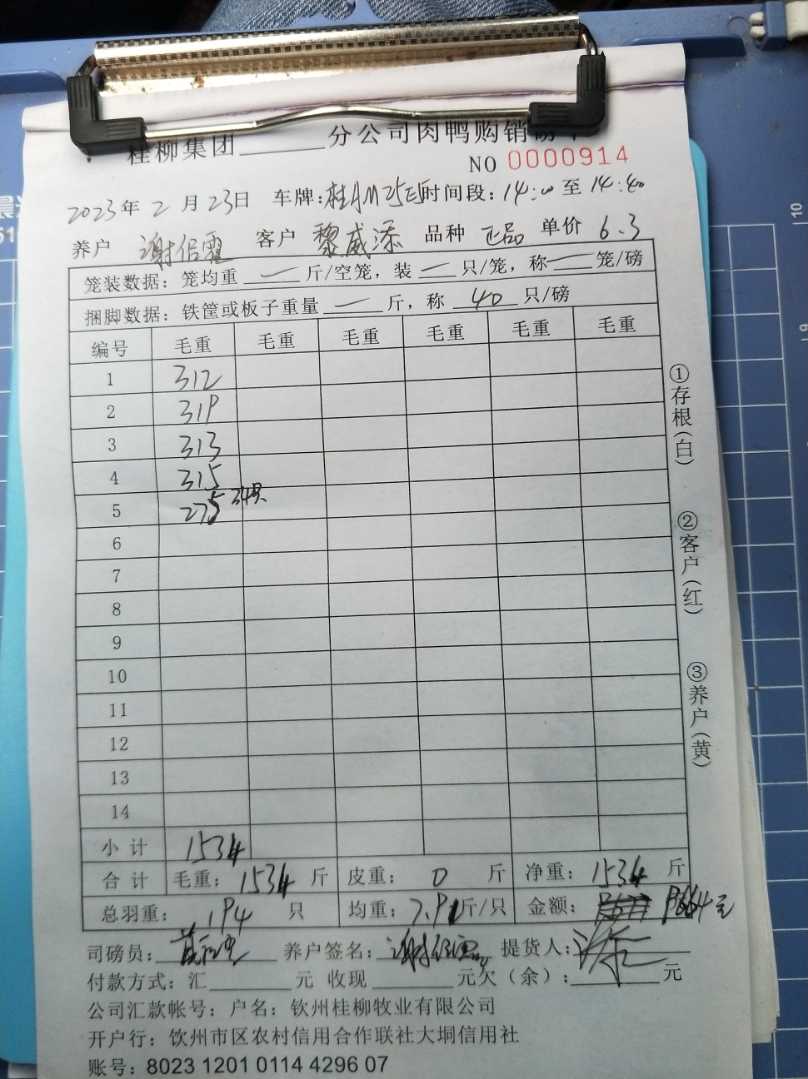 桂柳集团______分公司肉鸭购销
NO 0000914
2023年2月23日 车牌: 时间段:14:00至14:40
养户 谢 客户 黎威添 品种 正品 单价 6.3
笼装数据:笼均重 — 斤/空笼,装 — 只/笼,称 — 笼/磅
捆脚数据:铁筐或板子重量 — 斤,称 40 只/磅
编号 毛重 毛重 毛重 毛重 毛重 毛重
1 312
2 319
3 313
4 315
5 275 34只
6
7
8
9
10
11
12
13
14
小计 1534
合计 毛重:1534斤 皮重:0斤 净重:1534斤
总羽重:194只 均重:7.91斤/只 金额:9664元
司磅员: 养户签名:谢 提货人:
付款方式:汇______元 收现______元欠(余):______元
公司汇款帐号:户名:钦州桂柳牧业有限公司
开户行:钦州市区农村信用合作联社大垌信用社
账号:8023 1201 0114 4296 07
①存根(白)
②客户(红)
③养户(黄)
10
9